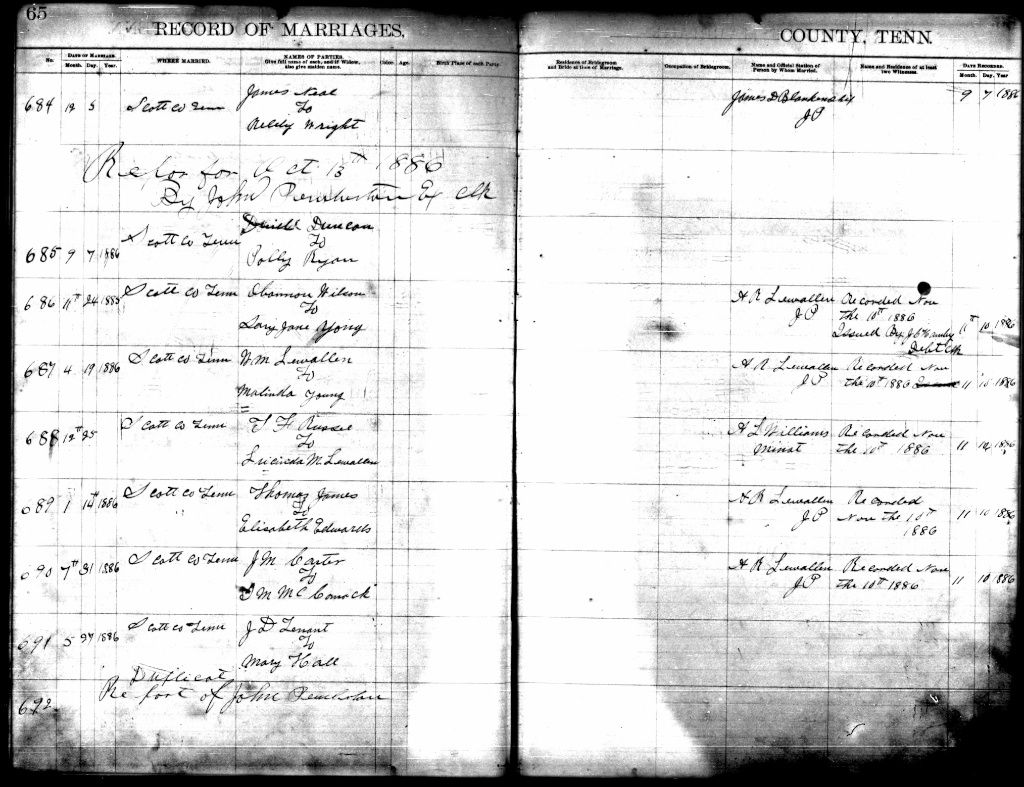 65
RECORD OF MARRIAGES,
COUNTY, TENN.
No.
DATE OF MARRIAGE.
Month. Day. Year.
WHERE MARRIED.
NAMES OF PARTIES.
Give full name of each, and if Widow,
also give maiden name.
Color.
Age.
Birth Place of each Party.
Residence of Bridegroom
and Bride at time of Marriage.
Occupation of Bridegroom.
Name and Official Station of
Person by Whom Married.
Name and Residence of at least
two Witnesses.
DATE RECORDED.
Month. Day. Year
684 12 5 Scott co Tenn
James Neal
To
Wright
James D Blankenship
JP
9 7 1886
Repor for Oct 13th 1886
By John Pemberton Ex Clk
685 9 7 1886 Scott co Tenn
Duncan
To
Polly Ryan
686 11th 24 1885 Scott co Tenn
Obannon Wilson
To
Jane Yong
H R Lewallen
JP
Recorded Nov
the 10th 1886
Issued By
Debt Clk
11th 10 1886
687 4 19 1886 Scott co Tenn
Wm Lewallen
To
Malinda Young
H R Lewallen
JP
Recorded Nov
the 10th 1886
11 10 1886
688 12th 25 Scott co Tenn
T F Russel
To
Lucinda M Lewallen
H L Williams
Minst
Recorded Nov
the 10th 1886
11 1886
689 1 14th 1886 Scott co Tenn
Thomas James
To
Elisabeth Edwards
H R Lewallen
JP
Recorded
Nov the 10th
1886
11 10 1886
690 7th 31 1886 Scott co Tenn
J M Carter
To
McComack
H R Lewallen
JP
Recorded Nov
the 10th 1886
11 10 1886
691 5 27 1886 Scott co Tenn
J D Tenant
To
Mary Hall
Duplicat
692 Report of John Pemberton